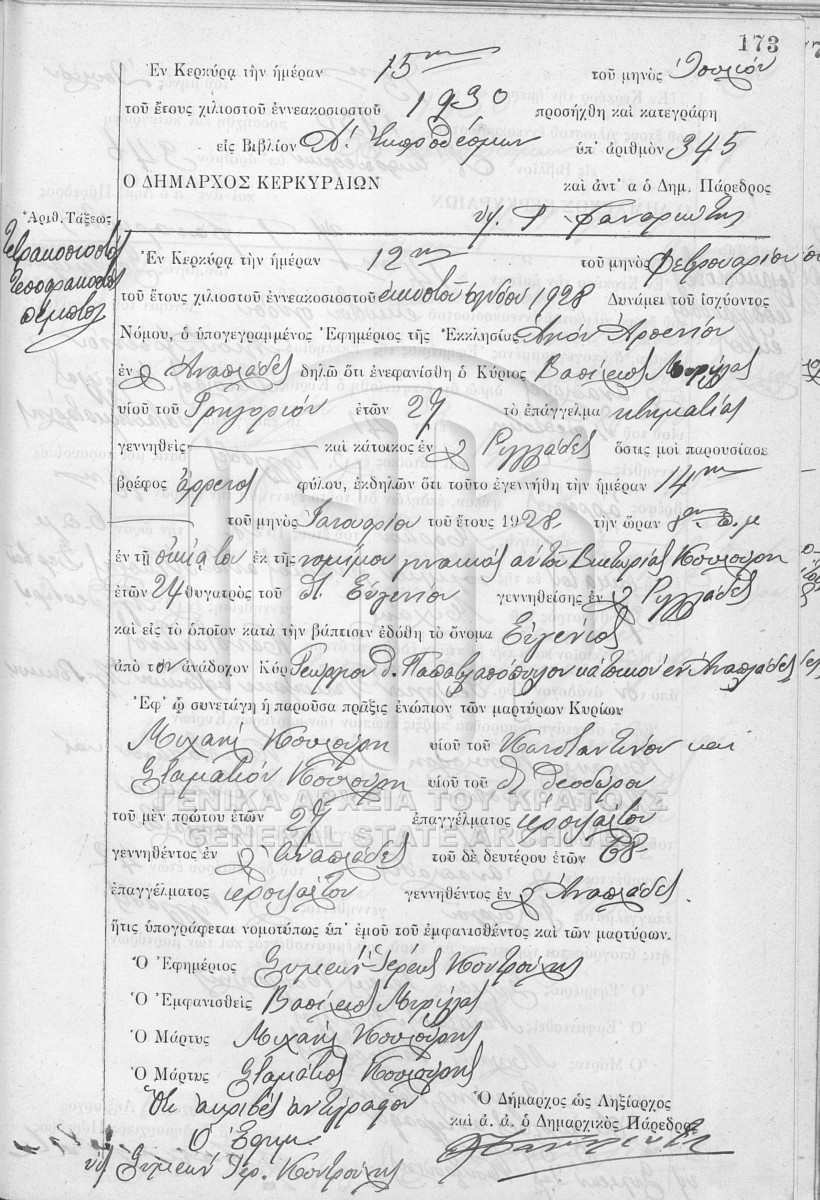 173
Ἐν Κερκύρᾳ τὴν ἡμέραν 15ην τοῦ μηνὸς Ἰουλίου
τοῦ ἔτους χιλιοστοῦ ἐννεακοσιοστοῦ 1930 προσήχθη καὶ κατεγράφη
εἰς Βιβλίον Α΄. Ἐκπροθέσμων ὑπ' ἀριθμὸν 345
Ο ΔΗΜΑΡΧΟΣ ΚΕΡΚΥΡΑΙΩΝ καὶ ἀντ' α ὁ Δημ. Πάρεδρος
Ἀριθ. Τάξεως
Τετρακοσιοστὸν
τεσσαρακοστὸν
πέμπτον
Ἐν Κερκύρᾳ τὴν ἡμέραν 12ην τοῦ μηνὸς Φεβρουαρίου
τοῦ ἔτους χιλιοστοῦ ἐννεακοσιοστοῦ εἰκοστοῦ ὀγδόου 1928 Δυνάμει τοῦ ἰσχύοντος
Νόμου, ὁ ὑπογεγραμμένος Ἐφημέριος τῆς Ἐκκλησίας Ἁγίου Ἀρσενίου
ἐν Ἀναπλάδες δηλῶ ὅτι ἐνεφανίσθη ὁ Κύριος Βασίλειος
υἱοῦ τοῦ Γρηγορίου ἐτῶν 27 τὸ ἐπάγγελμα κτηματίας
γεννηθεὶς καὶ κάτοικος ἐν Ριγγλάδες ὅστις μοὶ παρουσίασε
βρέφος ἄρρενος φύλου, ἐκδηλῶν ὅτι τοῦτο ἐγεννήθη τὴν ἡμέραν 14ην
τοῦ μηνὸς Ἰανουαρίου τοῦ ἔτους 1928 τὴν ὥραν 8ην π.μ
ἐν τῇ οἰκίᾳ του ἐκ τῆς νομίμου γυναικὸς αὐτοῦ Βικτωρίας Κουλούρη
ἐτῶν 24 θυγατρὸς τοῦ Εὐγενίου γεννηθείσης ἐν Ριγγλάδες
καὶ εἰς τὸ ὁποῖον κατὰ τὴν βάπτισιν ἐδόθη τὸ ὄνομα Εὐγένιος
ἀπὸ τὸν ἀνάδοχον Κύρ Γεώργιον Θ. Παπαβλασόπουλον κάτοικον ἐν Ἀναπλάδες
Ἐφ' ᾧ συνετάγη ἡ παροῦσα πρᾶξις ἐνώπιον τῶν μαρτύρων Κυρίων
Μιχαὴλ Κουλούρη υἱοῦ τοῦ Κωνσταντίνου καὶ
Σταμάτιον Κουλούρη υἱοῦ τοῦ Θεοδώρου
ΓΕΝΙΚΑ ΑΡΧΕΙΑ ΤΟΥ ΚΡΑΤΟΥΣ
τοῦ μὲν πρώτου ἐτῶν 27 ἐπαγγέλματος ἱεροψάλτου
GENERAL STATE ARCHIVES
γεννηθέντος ἐν Ἀναπλάδες τοῦ δὲ δευτέρου ἐτῶν
ἐπαγγέλματος ἱεροψάλτου γεννηθέντος ἐν Ἀναπλάδες.
ἥτις ὑπογράφεται νομοτύπως ὑπ' ἐμοῦ τοῦ ἐμφανισθέντος καὶ τῶν μαρτύρων.
Ὁ Ἐφημέριος Συμεὼν Ἱερεὺς
Ὁ Ἐμφανισθεὶς Βασίλειος
Ὁ Μάρτυς Μιχαὴλ Κουλούρης
Ὁ Μάρτυς Σταμάτιος Κουλούρης
Ὅτι ἀκριβὲς ἀντίγραφον Ὁ Δήμαρχος ὡς Ληξίαρχος
Ὁ Ἐφημ. καὶ ἀ. ἀ. ὁ Δημαρχικὸς Πάρεδρος
Συμεὼν Ἱερ.